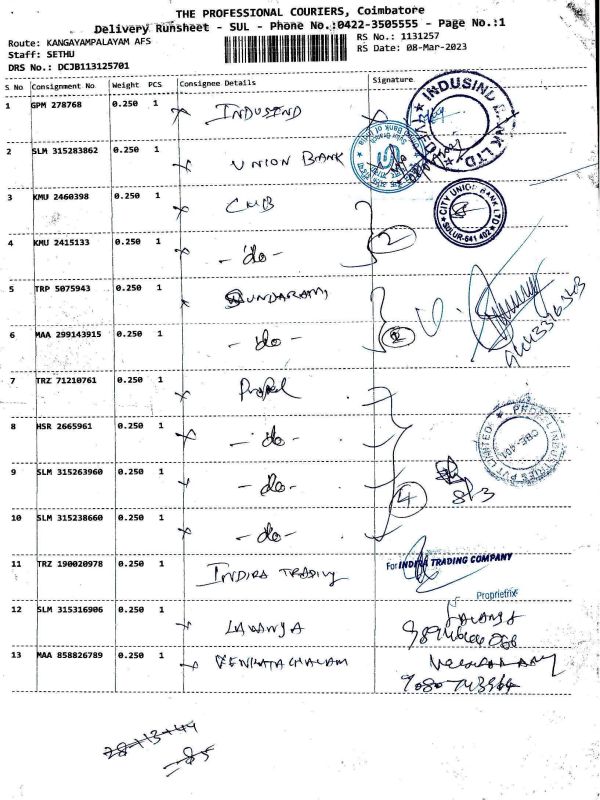 THE PROFESSIONAL COURIERS, Coimbatore
Delivery Runsheet - SUL - Phone No.:0422-3505555 - Page No.:1
Route: KANGAYAMPALAYAM AFS
Staff: SETHU
DRS No.: DCJB113125701
RS No.: 1131257
RS Date: 08-Mar-2023
S No Consignment No Weight PCS Consignee Details Signature
1 GPM 278768 0.250 1 INDUSIND
INDUSIND BANK LTD
2 SLM 315283862 0.250 1 UNION BANK
3 KMU 2460398 0.250 1 CUB
CITY UNION BANK LTD
SULUR-641 402
4 KMU 2415133 0.250 1 - do - 2
5 TRP 5075943 0.250 1 SUNDARAM
6 MAA 299143915 0.250 1 - do - 2
7 TRZ 71210761 0.250 1 Propel
8 HSR 2665961 0.250 1 - do -
PROPEL INDUSTRIES PVT LIMITED
CBE-401
9 SLM 315263960 0.250 1 - do - 4
8/3
10 SLM 315238660 0.250 1 - do -
11 TRZ 190020978 0.250 1 INDIRA TRADING
For INDIRA TRADING COMPANY
Proprietrix
12 SLM 315316906 0.250 1 LAVANYA
13 MAA 858826789 0.250 1 VENKATACHALAM
28+13+44
=85